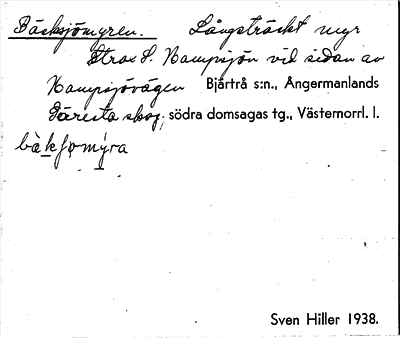 Bäcksjömyren. Långsträckt myr
Strax S. Kampsjön vid sidan av
Kampsjövägen Bjärtrå s:n., Ångermanlands
skog, södra domsagas tg., Västernorrl. l.
bàkʃjomýra
Sven Hiller 1938.